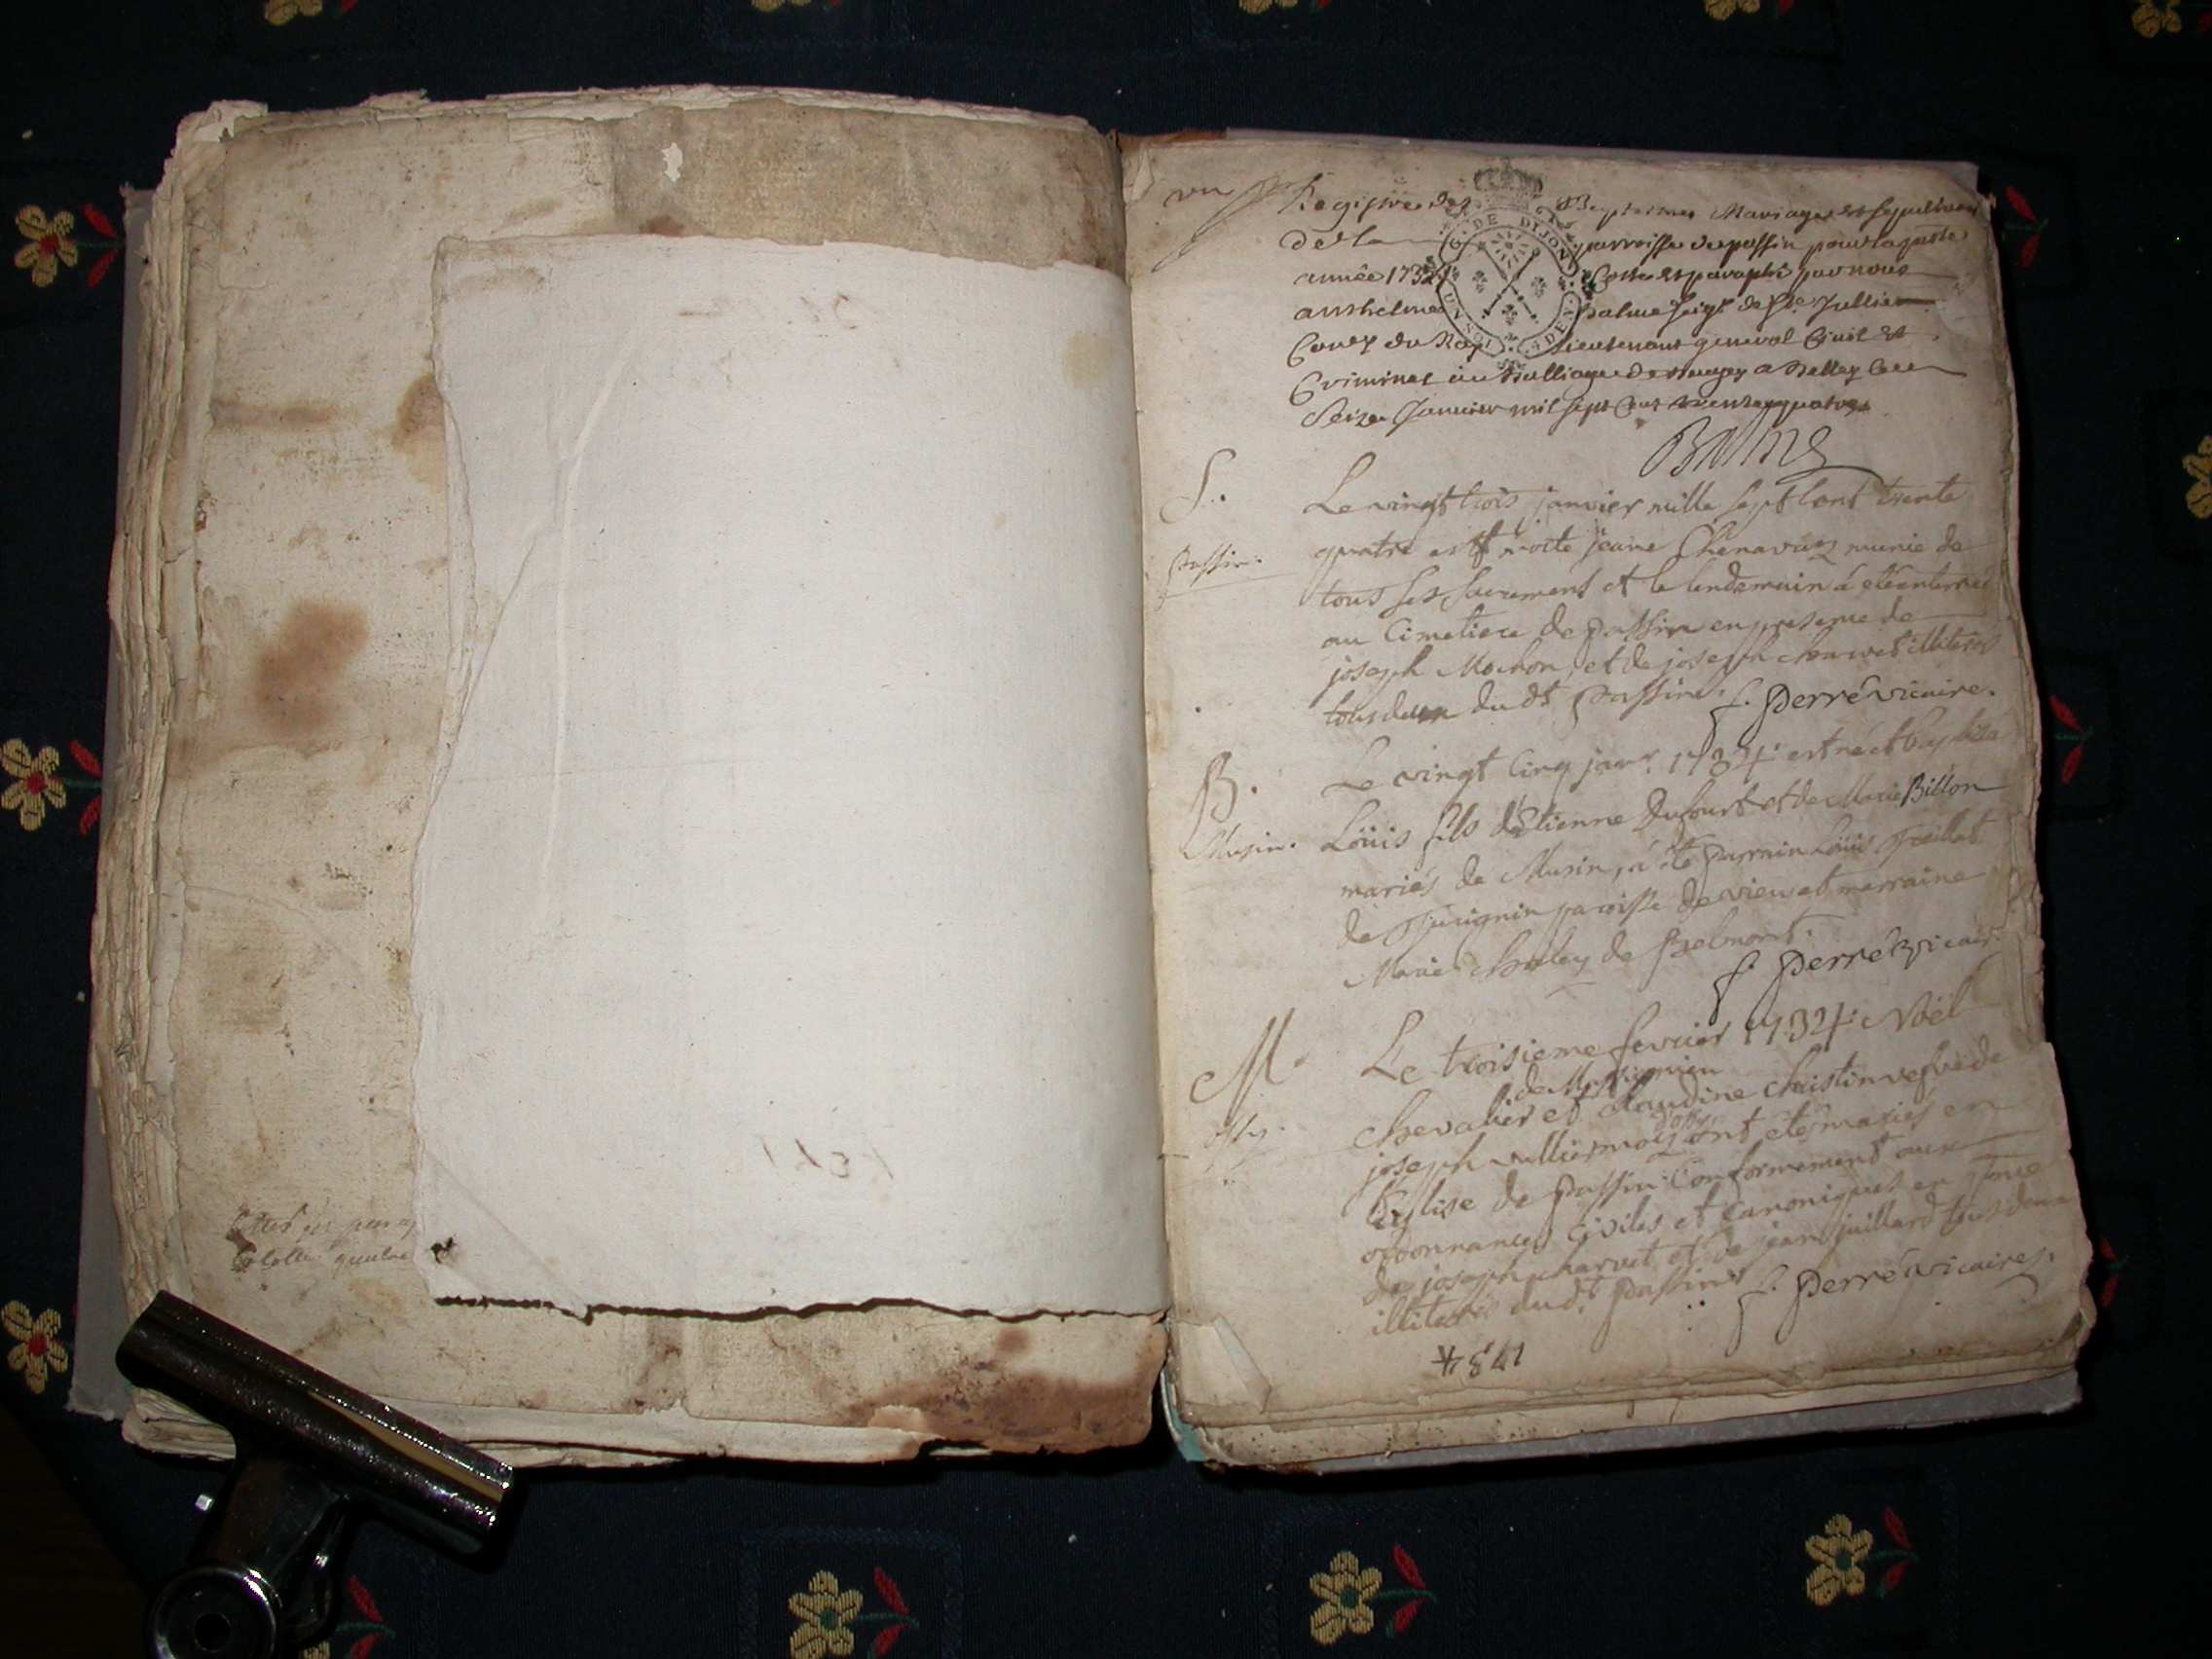 Registre des Baptesmes Mariages et sepultures
de la parroisse de passin pour la pnte
année 1734 Cotté et paraphé par nous
anthelme balme seigr de Ste Jullie
Coner du Roy Lieutenant general Civil et
Criminel au Balliage de Beugey a Belley Ce
Seize Janvier mil sept cent trente quatre
Balme
G. DE DIJON
S.
Passin.
Le vingt trois janvier mille sept cent trente
quatre est morte jeane Chenavaz munie de
tous ses sacrements et le lendemain a été enterrée
au Cimetiere de passin en presence de
joseph Mochon, et de joseph charvet illiterés
tous deux du dt passin. f. perré vicaire.
B.
Musin.
Le vingt Cinq janv. 1734 est né et baptisé
Loüis fils d'Estienne Dufourt et de Marie Billon
mariés de Musin, a été parrain Loüis
de parroisse de vieu et marraine
Marie de Belmont.
f. perré vicaire
M.
Ossy.
Le troisieme fevrier 1734. Noël
Chevalier et Claudine Christin vefve de
joseph vulliermoz ont étés mariés en
l'Eglise de passin Conformement aux
ordonnances Civiles et Canoniques en
de joseph charvet et de jean juillard tous deux
illiterés du dt passin f. perré vicaire.
1734